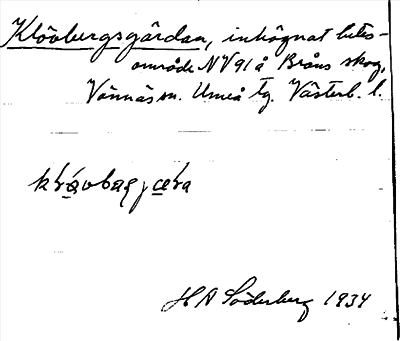 Klövbergsgärdan, inhägnat betes-
område NV 91 å Bråns skog,
Vännäs sn. Umeå tg. Västerb. l.
H A Söderberg 1934